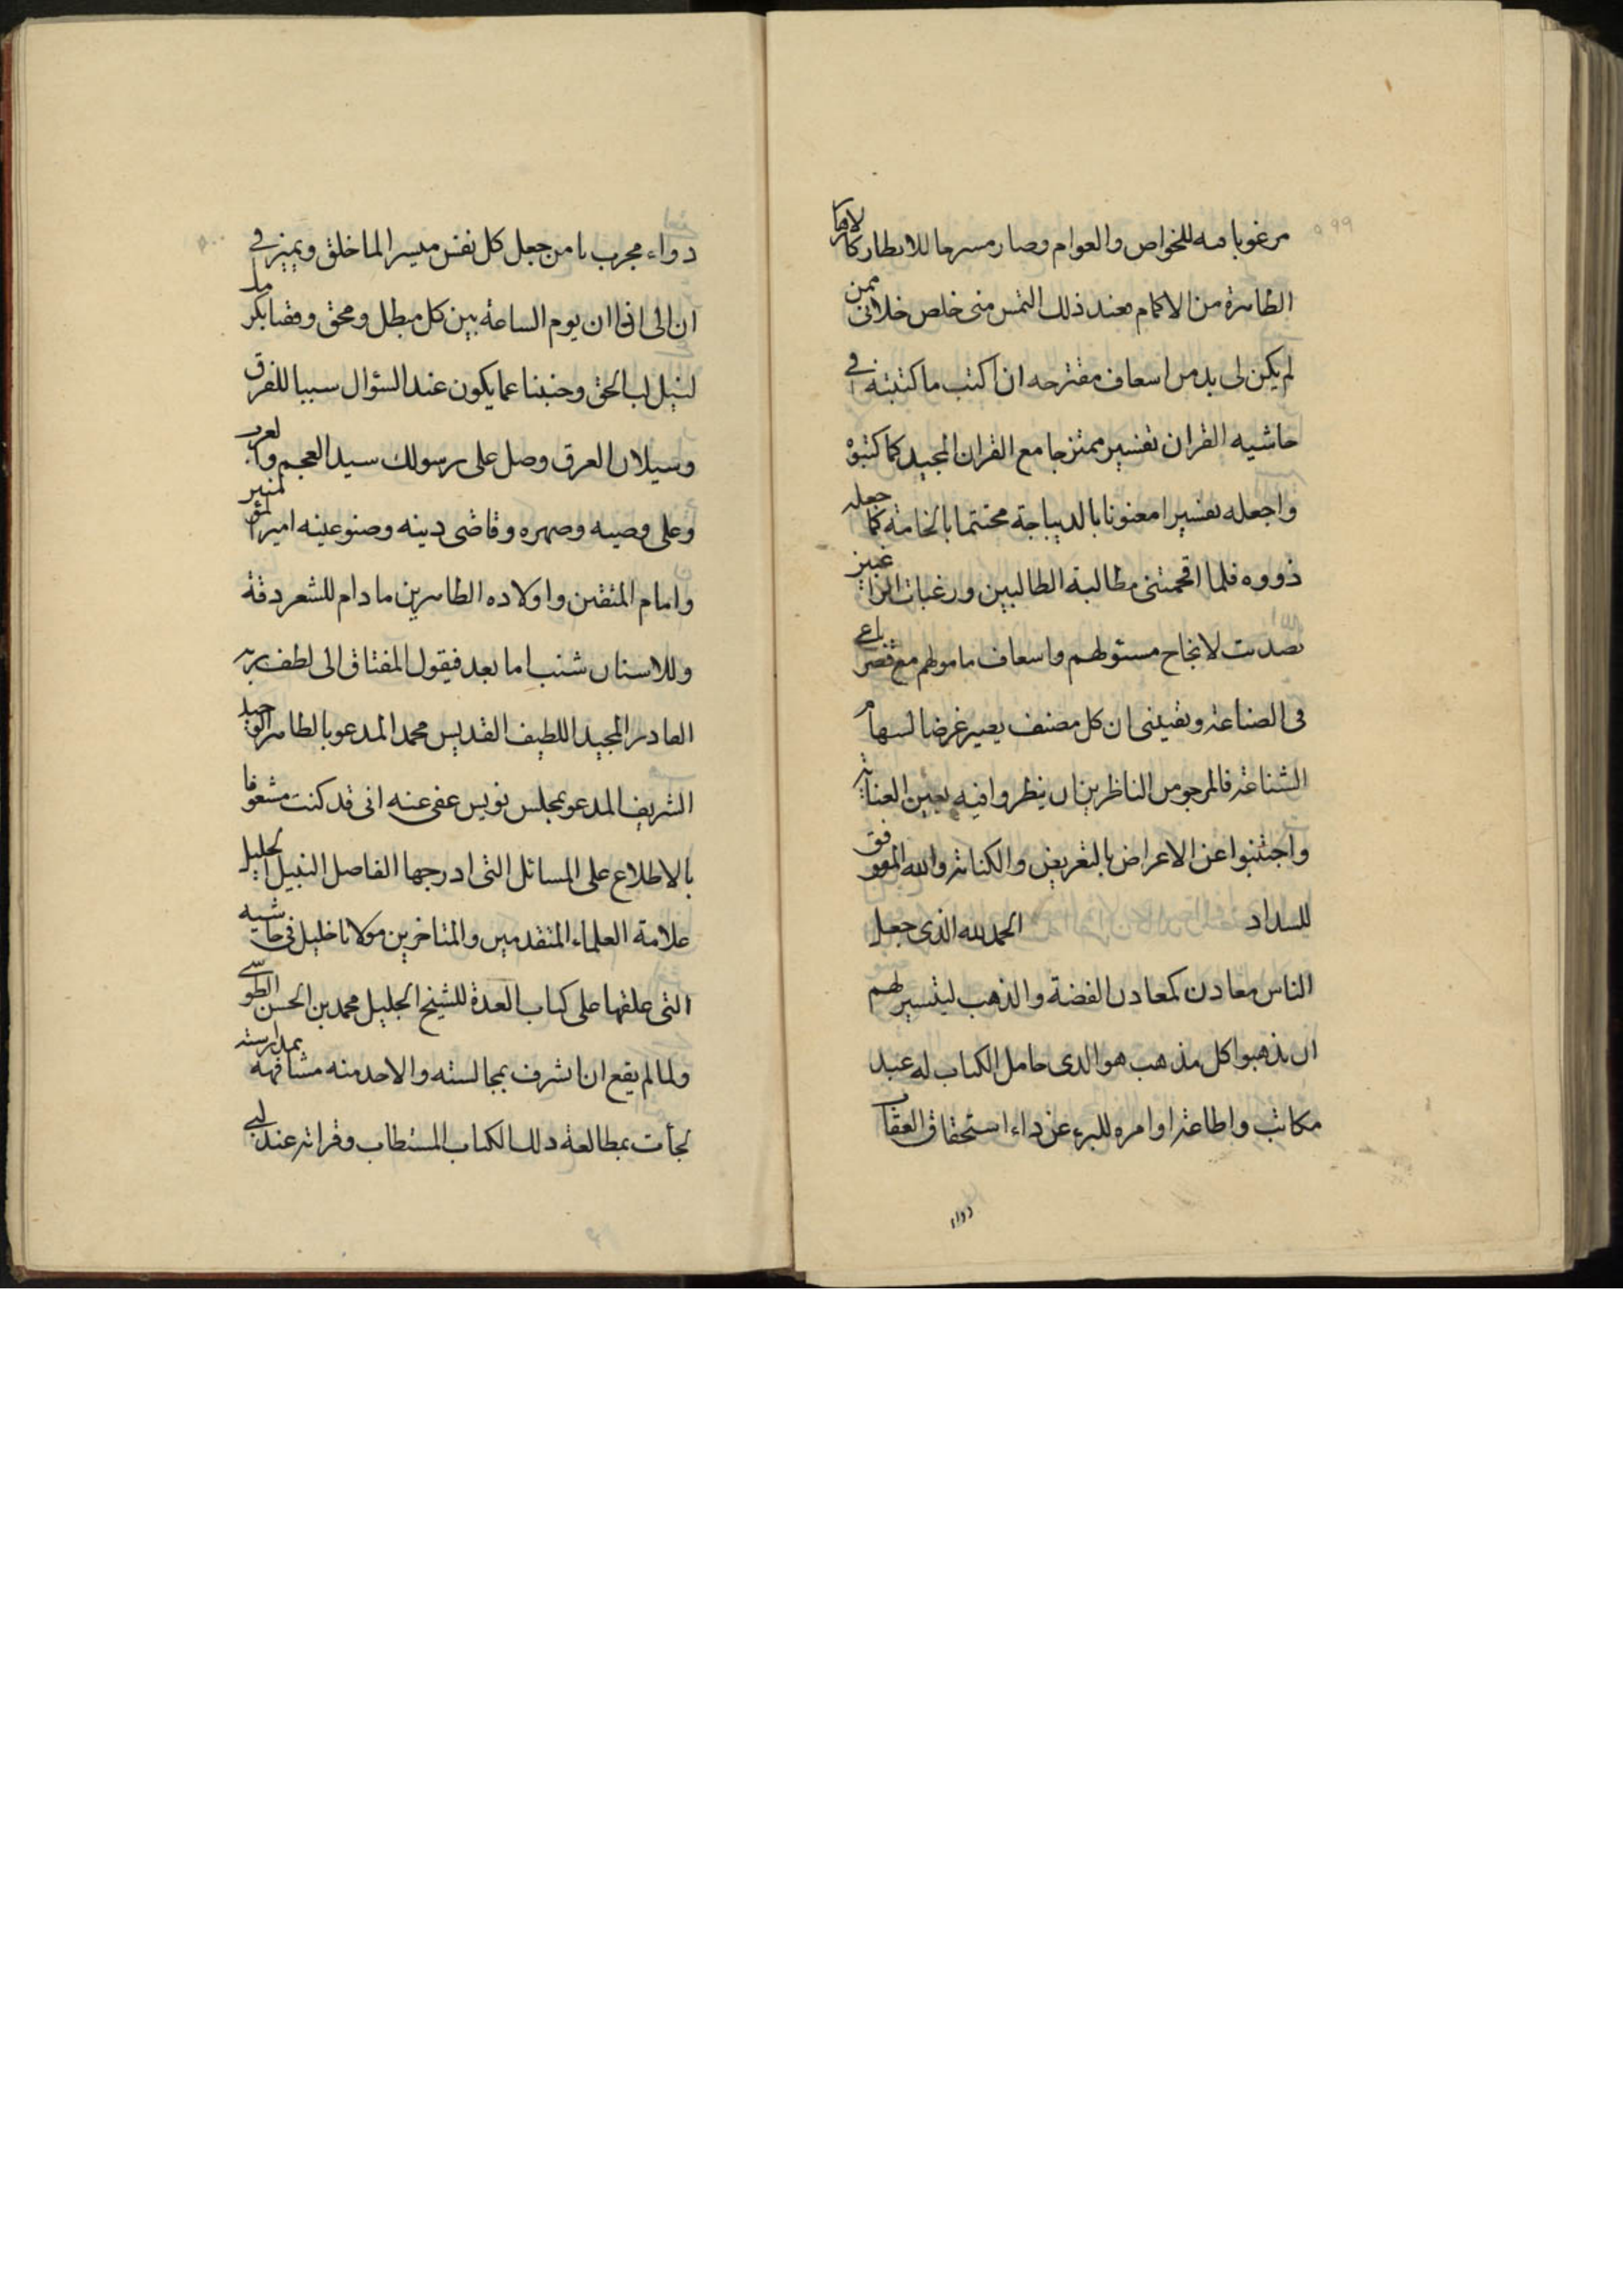 مرغوبا فيه للخواص والعوام وصار مسرحا للانظار كالازهار
الظاهرة من الاكمام فعند ذلك التمس منى خلص خلانى ممن
لم يكن لى بد من اسعاف مقترحه ان اكتب ما كتبته فى
حاشيه القران تفسير ممتزجا مع القران المجيد كما كتبوه
واجعله تفسيرا معنونا بالديباجة مختتما بالخاتمة كما جعله
ذووه فلما اقحمتنى مطالبة الطالبين ورغبات الراغبين
تصديت لانجاح مسئولهم واسعاف مامولهم مع قصر باعى
فى الصناعة ويقينى ان كل مصنف يصير غرضا لسهام
الشناعة فالمرجو من الناظرين ان ينظروا فيه بعين العناية
واجتنبوا عن الاعراض بالتعريض والكناية والله الموفق
للسداد الحمد لله الذى جعل
الناس معادن كمعادن الفضة والذهب ليتسير لهم
ان يذهبوا كل مذهب هو الذى حامل الكتاب له عبد
مكاتب واطاعة اوامره للبرء عن داء استحقاق العقاب
دواء
دواء مجرب يا من جعل كل نفس ميسرا لما خلق ويميز فى
ان الى اذا ان يوم الساعة بين كل مبطل ومحق وفقنا بكرمك
لنيل لب الحق وجنبنا عما يكون عند السؤال سببا للفرق
وسيلان العرق وصل على رسولك سيد العجم والعرب
وعلى وصيه وصهره وقاضى دينه وصنو عينه امير المؤمنين
وامام المتقين واولاده الطاهرين ما دام للشعر دقة
وللاسنان شنب اما بعد فيقول المفتاق الى لطف ربه
القادر المجيد اللطيف القديس محمد المدعو بالطاهر
الشريف المدعو بمجلس نويس عفى عنه انى قد كنت مشعوفا
بالاطلاع على المسائل التى ادرجها الفاضل النبيل الجليل
علامة العلماء المتقدمين والمتاخرين مولانا خليل فى حاشيه
التى علقها على كتاب العدة للشيخ الجليل محمد بن الحسن الطوسى
ولما لم يقع ان اتشرف بمجالسته والاخذ منه مشافهه بمدارسته
لجأت بمطالعة ذلك الكتاب المستطاب وقراته عند